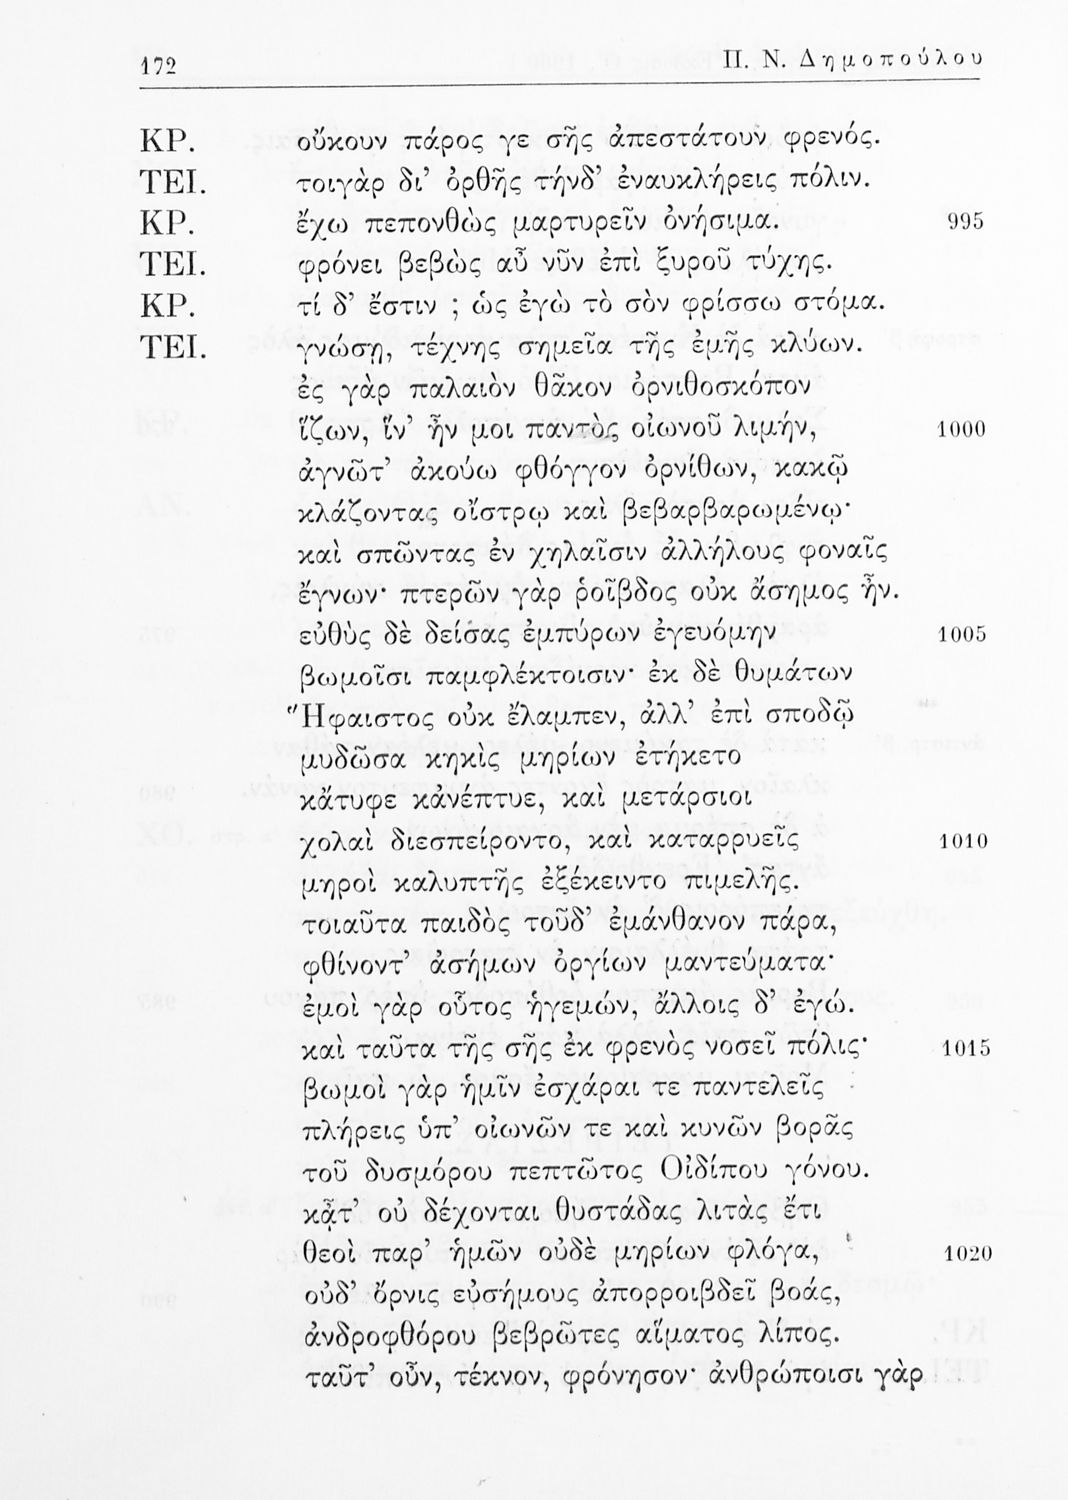 172 Π. Ν. Δημοπούλου
ΚΡ. οὔκουν πάρος γε σῆς ἀπεστάτουν φρενός.
ΤΕΙ. τοιγὰρ δι’ ὀρθῆς τήνδ’ ἐναυκλήρεις πόλιν.
ΚΡ. ἔχω πεπονθὼς μαρτυρεῖν ὀνήσιμα. 995
ΤΕΙ. φρόνει βεβὼς αὖ νῦν ἐπὶ ξυροῦ τύχης.
ΚΡ. τί δ’ ἔστιν ; ὡς ἐγὼ τὸ σὸν φρίσσω στόμα.
ΤΕΙ. γνώσῃ, τέχνης σημεῖα τῆς ἐμῆς κλύων.
ἐς γὰρ παλαιὸν θᾶκον ὀρνιθοσκόπον
ἵζων, ἵν’ ἦν μοι παντὸς οἰωνοῦ λιμήν, 1000
ἀγνῶτ’ ἀκούω φθόγγον ὀρνίθων, κακῷ
κλάζοντας οἴστρῳ καὶ βεβαρβαρωμένῳ·
καὶ σπῶντας ἐν χηλαῖσιν ἀλλήλους φοναῖς
ἔγνων· πτερῶν γὰρ ῥοῖβδος οὐκ ἄσημος ἦν.
εὐθὺς δὲ δείσας ἐμπύρων ἐγευόμην 1005
βωμοῖσι παμφλέκτοισιν· ἐκ δὲ θυμάτων
Ἥφαιστος οὐκ ἔλαμπεν, ἀλλ’ ἐπὶ σποδῷ
μυδῶσα κηκὶς μηρίων ἐτήκετο
κἄτυφε κἀνέπτυε, καὶ μετάρσιοι
χολαὶ διεσπείροντο, καὶ καταρρυεῖς 1010
μηροὶ καλυπτῆς ἐξέκειντο πιμελῆς.
τοιαῦτα παιδὸς τοῦδ’ ἐμάνθανον πάρα,
φθίνοντ’ ἀσήμων ὀργίων μαντεύματα·
ἐμοὶ γὰρ οὗτος ἡγεμών, ἄλλοις δ’ ἐγώ.
καὶ ταῦτα τῆς σῆς ἐκ φρενὸς νοσεῖ πόλις· 1015
βωμοὶ γὰρ ἡμῖν ἐσχάραι τε παντελεῖς
πλήρεις ὑπ’ οἰωνῶν τε καὶ κυνῶν βορᾶς
τοῦ δυσμόρου πεπτῶτος Οἰδίπου γόνου.
κᾆτ’ οὐ δέχονται θυστάδας λιτὰς ἔτι
θεοὶ παρ’ ἡμῶν οὐδὲ μηρίων φλόγα, 1020
οὐδ’ ὄρνις εὐσήμους ἀπορροιβδεῖ βοάς,
ἀνδροφθόρου βεβρῶτες αἵματος λίπος.
ταῦτ’ οὖν, τέκνον, φρόνησον· ἀνθρώποισι γὰρ